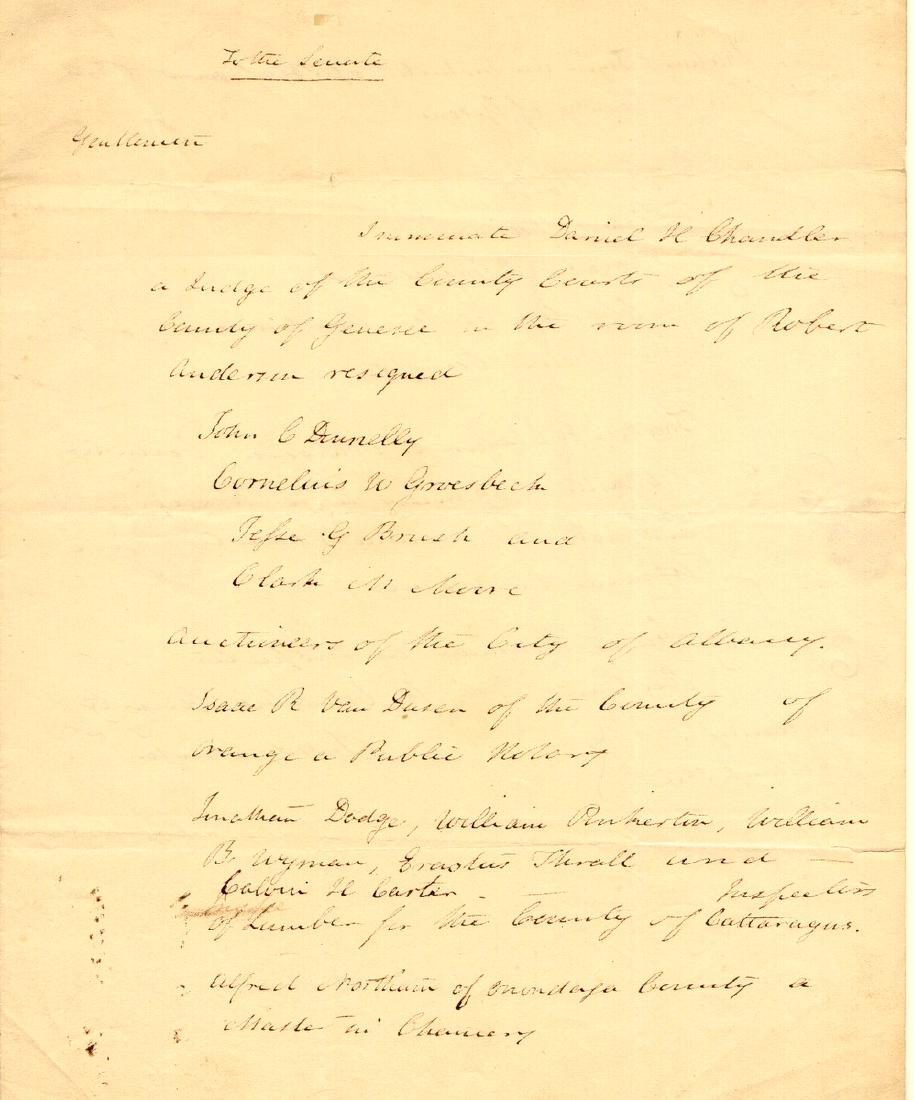 To the Senate
Gentlemen
I nominate Daniel H Chandler
a Judge of the County Courts of the
County of Genesee in the room of Robert
Anderson resigned
John C Donnelly
Cornelius W Groesbeck
Jesse G Brush and
Clark M Moore
Auctioneers of the City of Albany.
Isaac R Van Dusen of the County of
Orange a Public Notary
Jonathan Dodge, William Pinkerton, William
B Wyman, Erastus Thrall and —
Calvin H Carter — Inspectors
of Lumber for the County of Cattaragus.
Alfred Northam of Onondaga County a
Master in Chancery